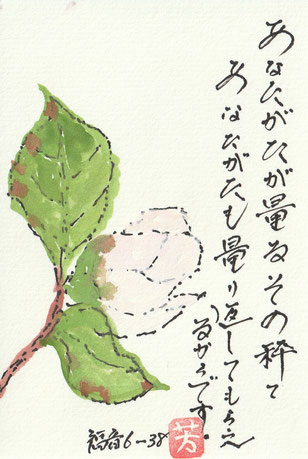 あなたがたが量るその秤で
あなたがたも量り返してもらえ
るからです。
福音6-38
芳